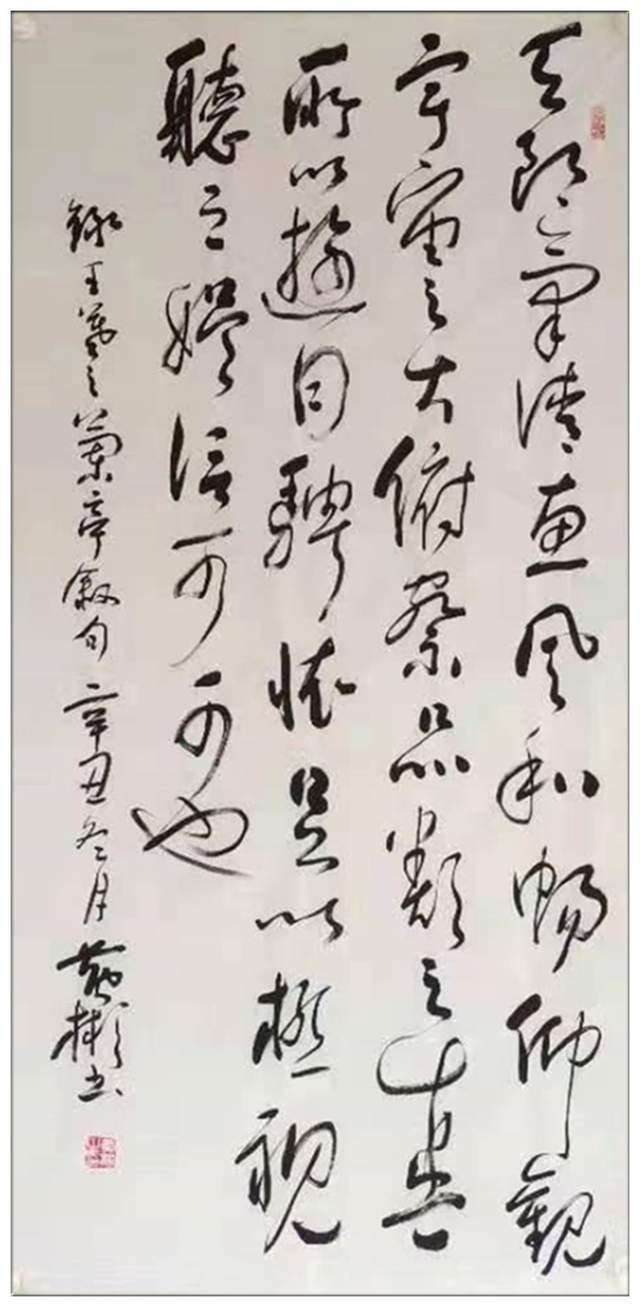 天朗氣清惠風和暢仰觀
宇宙之大俯察品類之盛
所以遊目騁懷足以極視
聽之娛信可可也
錄王羲之蘭亭敘句辛丑冬月黃彬書